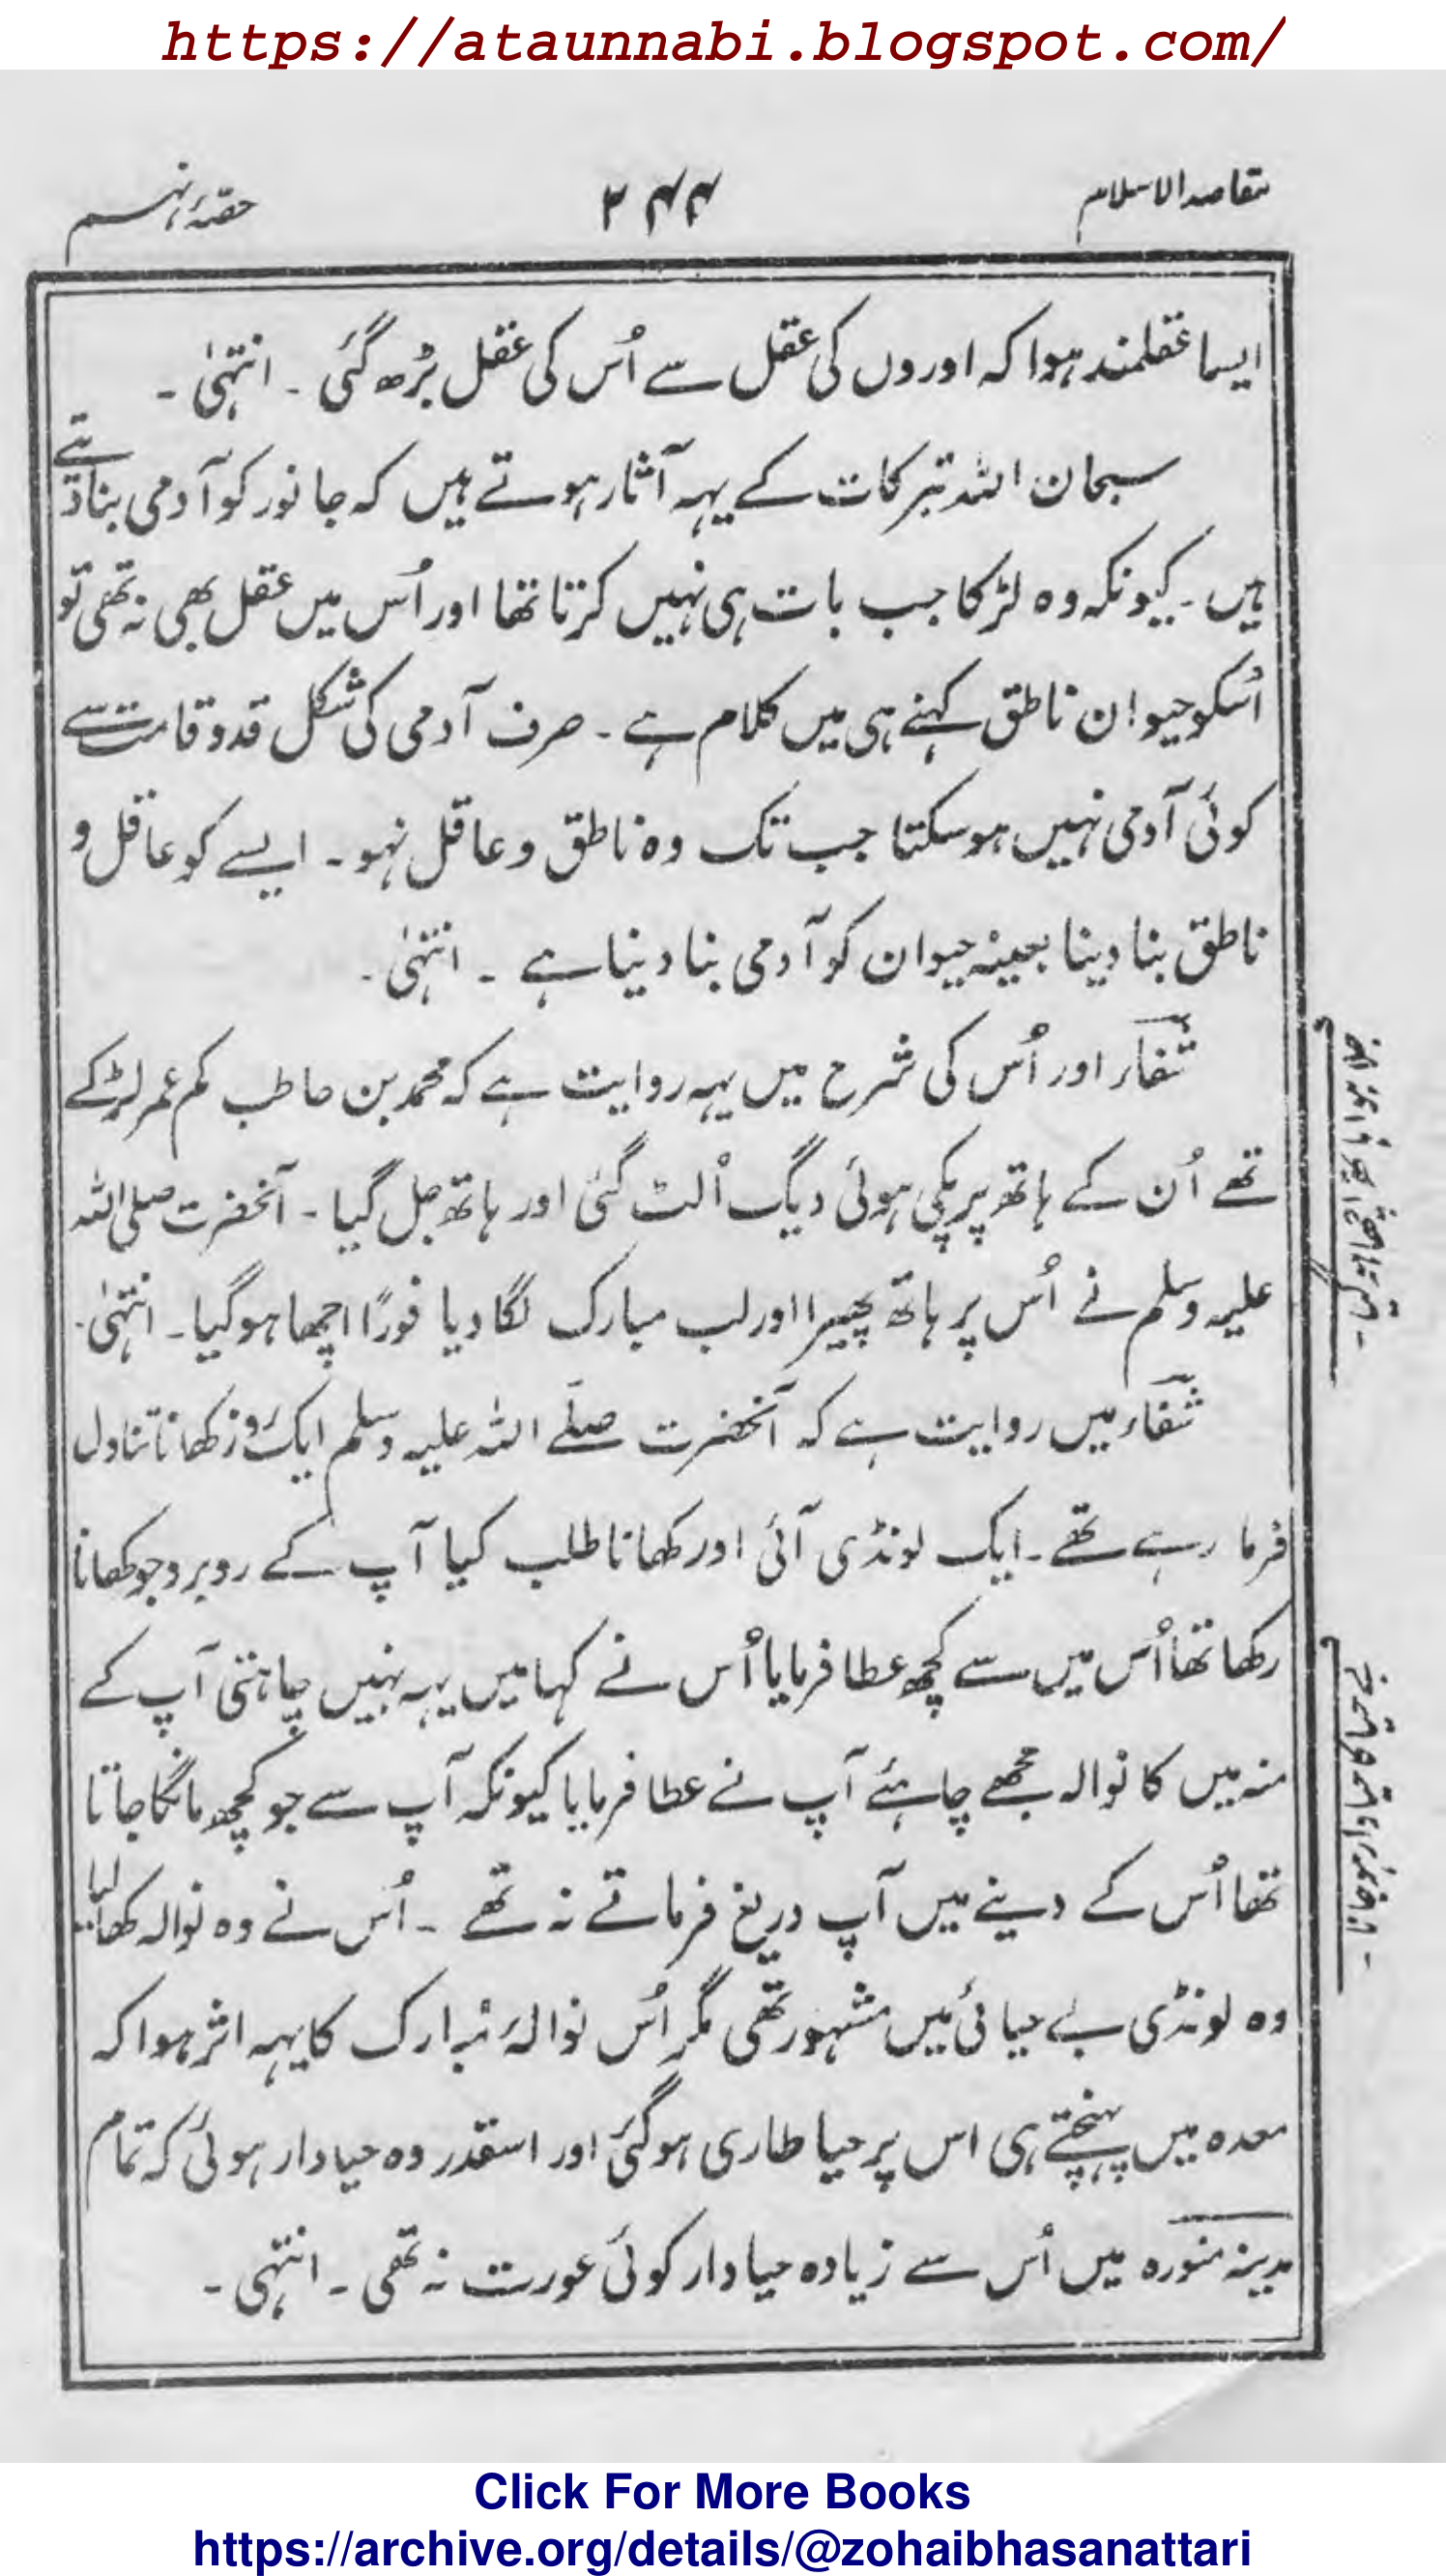 https://ataunnabi.blogspot.com/
مقاصد الاسلام ۲۴۴ حصۂ نہم
ایسا عقلمند ہوا کہ اوروں کی عقل سے اُس کی عقل بڑھ گئی ۔ انتہیٰ ۔
سبحان اللہ تبرکات کے یہہ آثار ہوتے ہیں کہ جانور کو آدمی بنا دیتے
ہیں ۔ کیونکہ وہ لڑکا جب بات ہی نہیں کرتا تھا اور اُس میں عقل بھی نہ تھی تو
اُسکو حیوان ناطق کہنے ہی میں کلام ہے ۔ صرف آدمی کی شکل قد و قامت سے
کوئی آدمی نہیں ہو سکتا جب تک وہ ناطق و عاقل نہو ۔ ایسے کو عاقل و
ناطق بنا دینا بعینہ حیوان کو آدمی بنا دینا ہے ۔ انتہیٰ ۔
شفاء اور اُس کی شرح میں یہہ روایت ہے کہ محمد بن حاطب کم عمر لڑکے
تھے اُن کے ہاتھ پر پکی ہوئی دیگ اُلٹ گئی اور ہاتھ جل گیا ۔ آنحضرت صلی اللہ
علیہ وسلم نے اُس پر ہاتھ پھیرا اور لب مبارک لگا دیا فورًا اچھا ہو گیا ۔ انتہیٰ ۔
شفاء میں روایت ہے کہ آنحضرت صلے اللہ علیہ وسلم ایک روز کھانا تناول
فرما رہے تھے ۔ ایک لونڈی آئی اور کھانا طلب کیا آپ کے روبرو جو کھانا
رکھا تھا اُس میں سے کچھ عطا فرمایا اُس نے کہا میں یہہ نہیں چاہتی آپ کے
منہ میں کا نوالہ مجھے چاہئے آپ نے عطا فرمایا کیونکہ آپ سے جو کچھ مانگا جاتا
تھا اُس کے دینے میں آپ دریغ فرماتے نہ تھے ۔ اُس نے وہ نوالہ کھا لیا
وہ لونڈی بے حیائی میں مشہور تھی مگر اُس نوالۂ مبارک کا یہہ اثر ہوا کہ
معدہ میں پہنچتے ہی اس پر حیا طاری ہو گئی اور اسقدر وہ حیادار ہوئی کہ تمام
مدینہ منورہ میں اُس سے زیادہ حیادار کوئی عورت نہ تھی ۔ انتہی ۔
Click For More Books
https://archive.org/details/@zohaibhasanattari